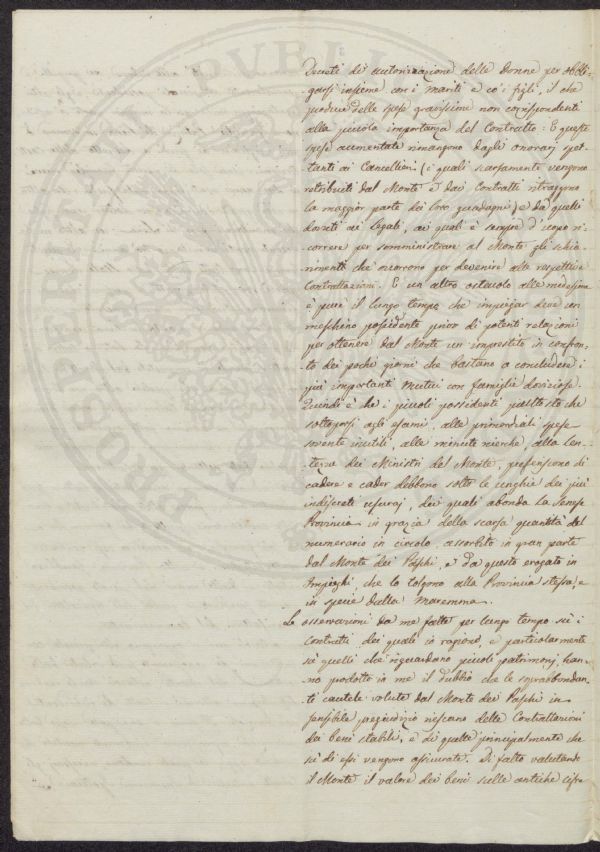 Decreti di autorizazione delle Donne per obbli-
garsi insieme con i mariti e co' i figli, il che
produce delle spese gravissime non corrispondenti
alla piccola importanza del Contratto: E queste
spese aumentate rimangono dagli onorarj spet-
tanti ai Cancellieri (i quali scarsamente vengono
retribuiti dal Monte e dai Contratti ritraggono
la maggior parte dei loro guadagni) e da quelli
dovuti ai Legali, ai quali è sempre d'uopo ri-
correre per somministrare al Monte gli schia-
rimenti che occorrono per devenire alle respettive
Contrattazioni. E un altro ostacolo alle medesime
è pure il lungo tempo che impiegar deve un
meschino possidente privo di potenti relazioni
per ottenere dal Monte un imprestito in confron-
to dei pochi giorni che bastano a concludere i
più importanti Mutui con famiglie doviziose.
Quindi è che i piccoli possidenti piuttosto che
sottoporsi agli esami, alle primordiali spese
sovente inutili, alle minute ricerche alla len-
tezza dei Ministri del Monte, preferiscono di
cadere e cader debbono sotto le unghie dei più
indiscreti usuraj, dei quali abonda la Senese
Provincia in grazia della scarsa quantità del
numerario in circolo, assorbito in gran parte
dal Monte dei Paschi, e da questo erogato in
Impieghi, che lo tolgono alla Provincia stessa, e
in specie dalla Maremma.
Le osservazioni da me fatte per lungo tempo su i
Contratti dei quali io ragiono, e particolarmente
su quelli che riguardano piccoli patrimonj, han-
no prodotto in me il dubbio che le soprabbondan-
ti cautele volute dal Monte dei Paschi in
sensibile pregiudizio riescano delle Contrattazioni
dei beni stabili, e di quelle principalmente che
su di essi vengono assicurate. Di fatto valutando
il Monte il valore dei beni sulle antiche cifre
PROSPERITATI PVBLICAE